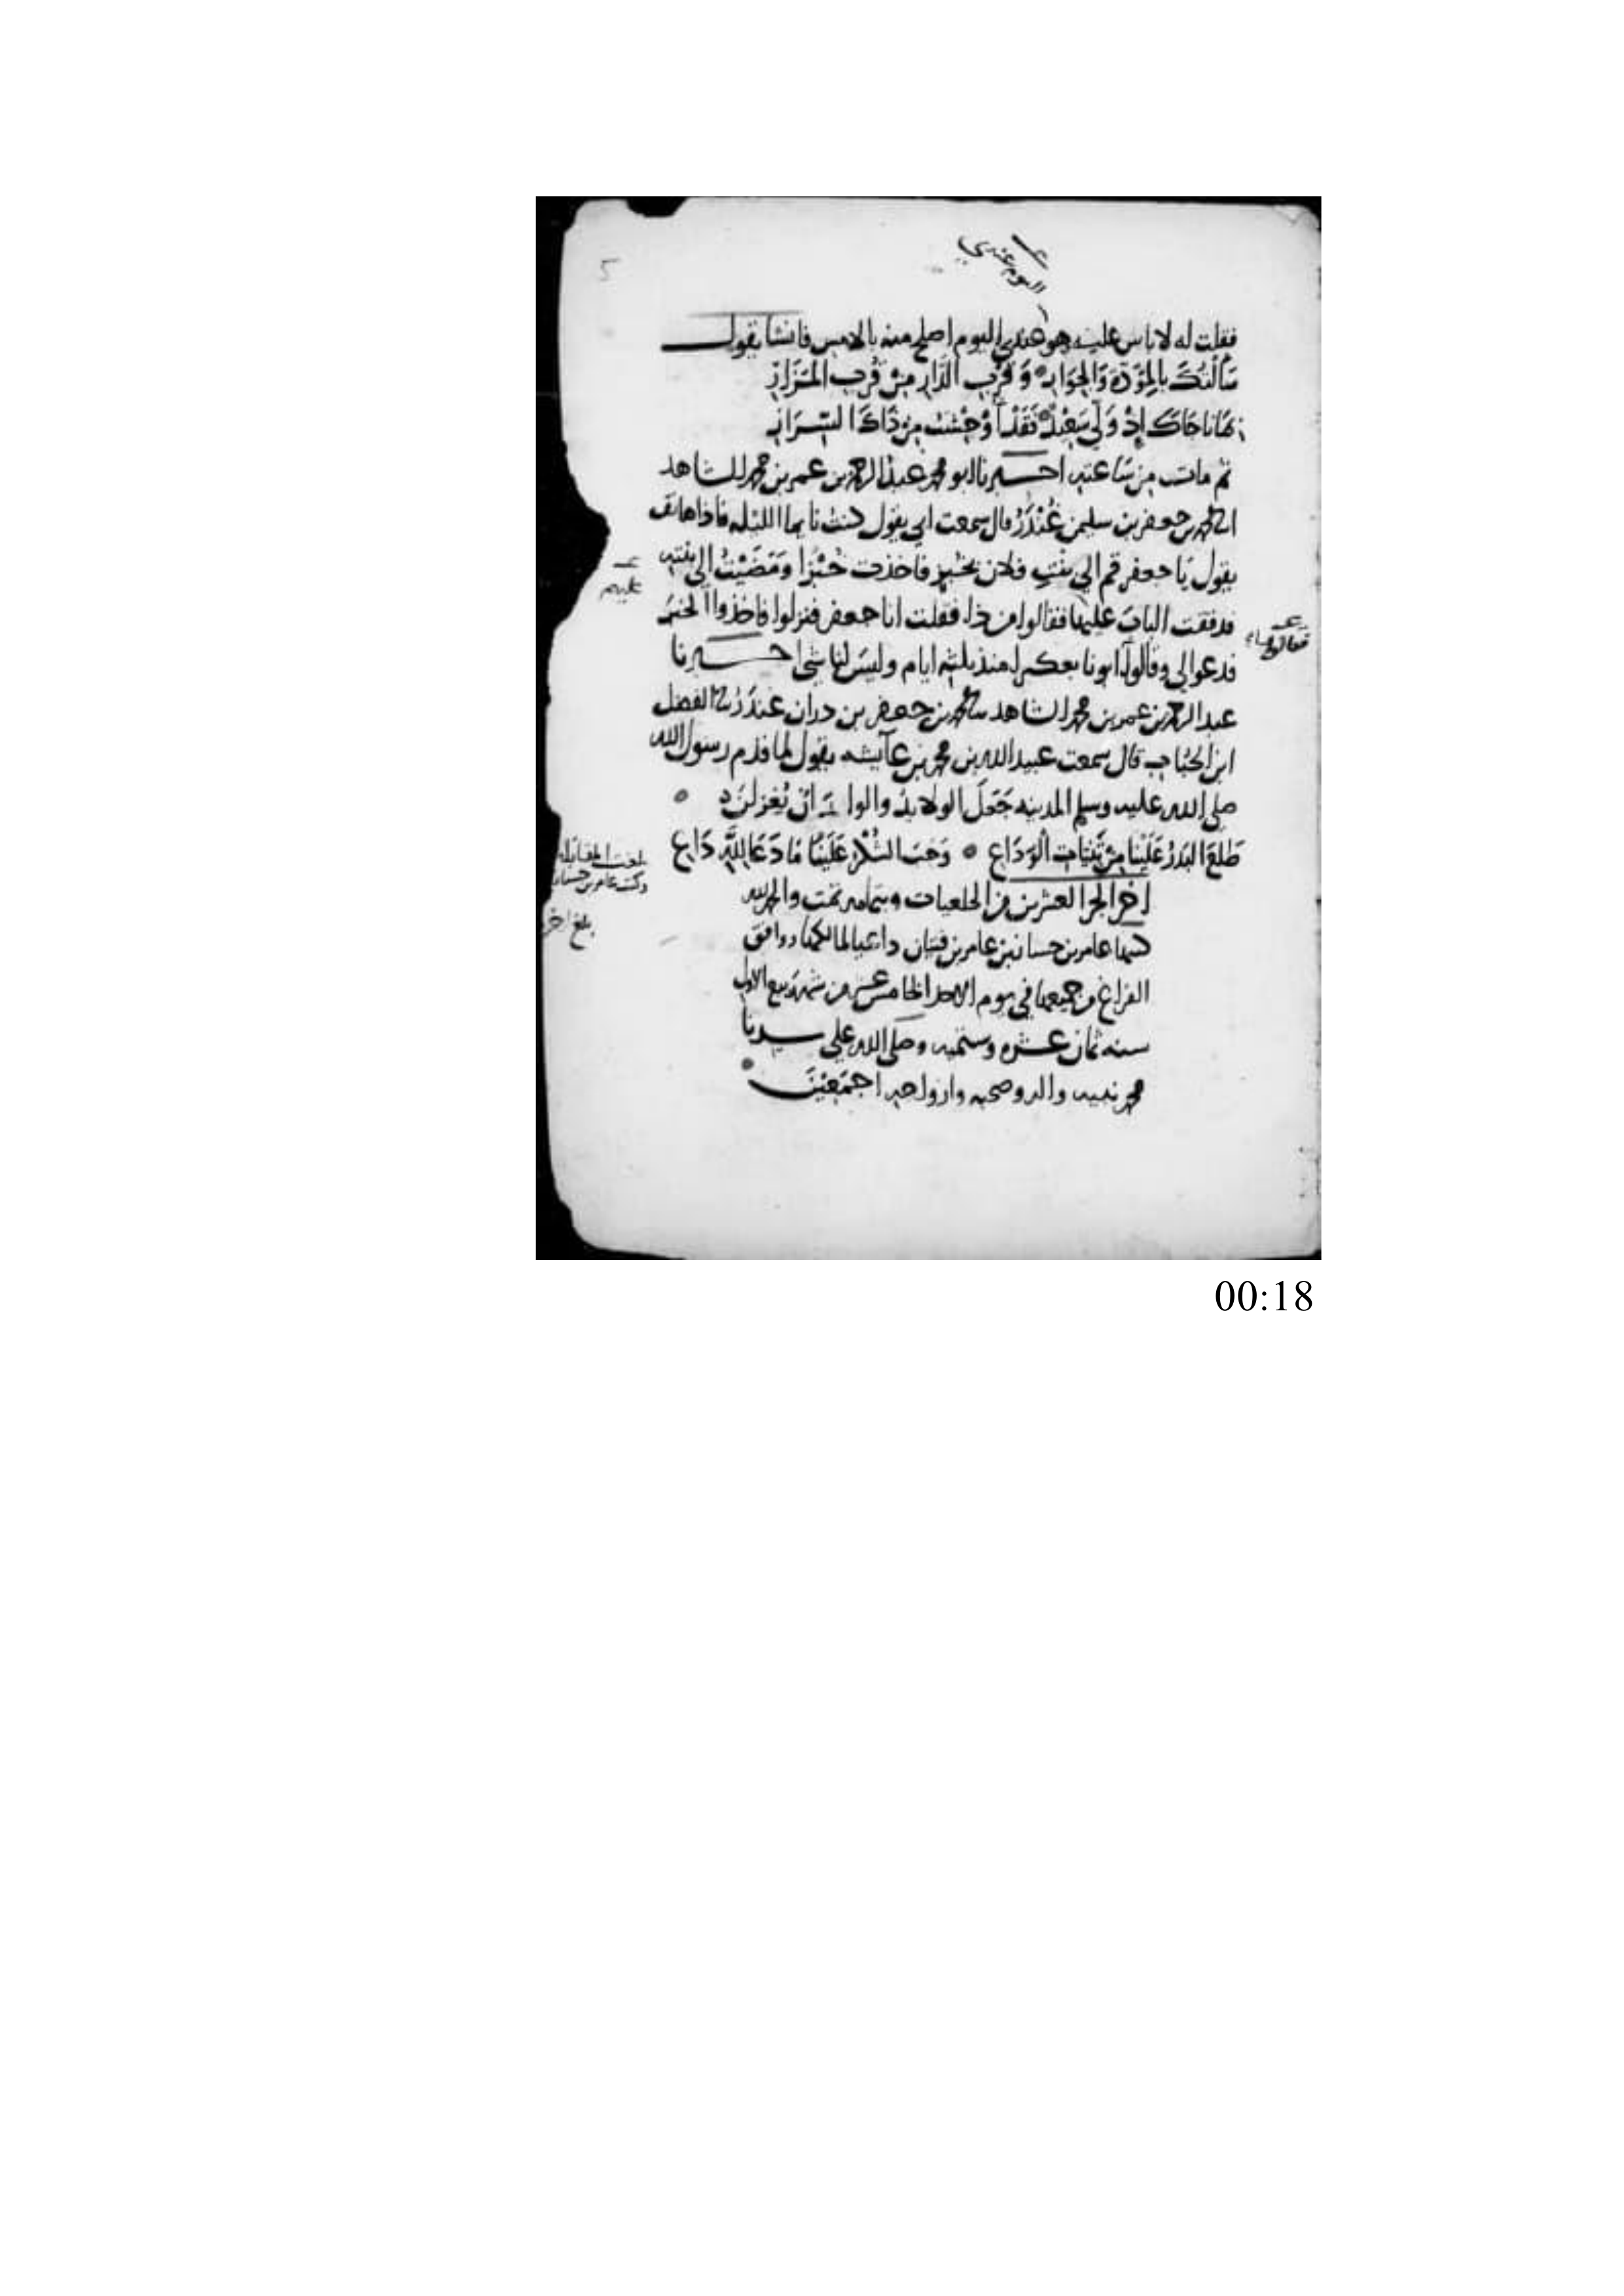 اليوم عندي
فقلت له لا باس عليه هو عندي اليوم اصلح منه بالامس فانشا يقول
سَالتُكَ بالموَدّة وَالجوَار وَقُرْب الدَّار مِنْ قُرب المَزَار
اِذْ وَلّي سَعِيْدٌ فَقَدْ اَوْحَشت مِنْ ذَاكَ
ثم مات مِن سَاعته اخبرنا ابو محمد عبد الرحمن بن عمر بن محمد الشاهد
محمد بن جعفر بن سليمن غُنْدَرُ قال سمعت ابي يقول كنت نايما الليله فاذا هاتف
يقول يَا جعفر قم الي بنتِ فلان بخبزٍ فاخذت خُبْزا وَمَضَيْتُ الي بنته
عليهم
فدققت الباب عليها فقالوا من ذا فقلت انا جعفر فنزلوا فاخذوا الخبز
فدعوا لي وقالوا ابونا بعكبرا منذ ثلثه ايام وليسَ لنا شي اخبرنا
عبد الرحمن بن عمر بن محمد الشاهد محمد بن جعفر بن دران غندَرُ الفضل
ابن الحُبَاب قال سمعت عبيد الله بن محمد بن عآيشه يقول لما قدم رسول الله
صلى الله عليه وسلم المدينه جَعَلَ الولايد
طَلعَ البَدرُ عَلَيْنا مِنْ ثَنِيَات الْوَدَاعِ وَجَبَ الشُّكْرُ عَلَيْنَا مَا دَعَا لِلَّهِ دَاعِ
بلغت المقابله
وكتب عامر بن حسان
اخر الجز العشرين من الخلعيات وبتمامه تمت والحمد لله
بلغ اخر
كتبها عامر بن حسان بن عامر بن فتيان ووافق
الفراغ من جميعها في يوم الاحد الخامس عشر من شهر ربيع الاول
سنه ثمان عشره وستميه وصلى الله على سيدنا
محمد نبيه واله وصحبه وازواجه اجمَعِيْنَ
00:18